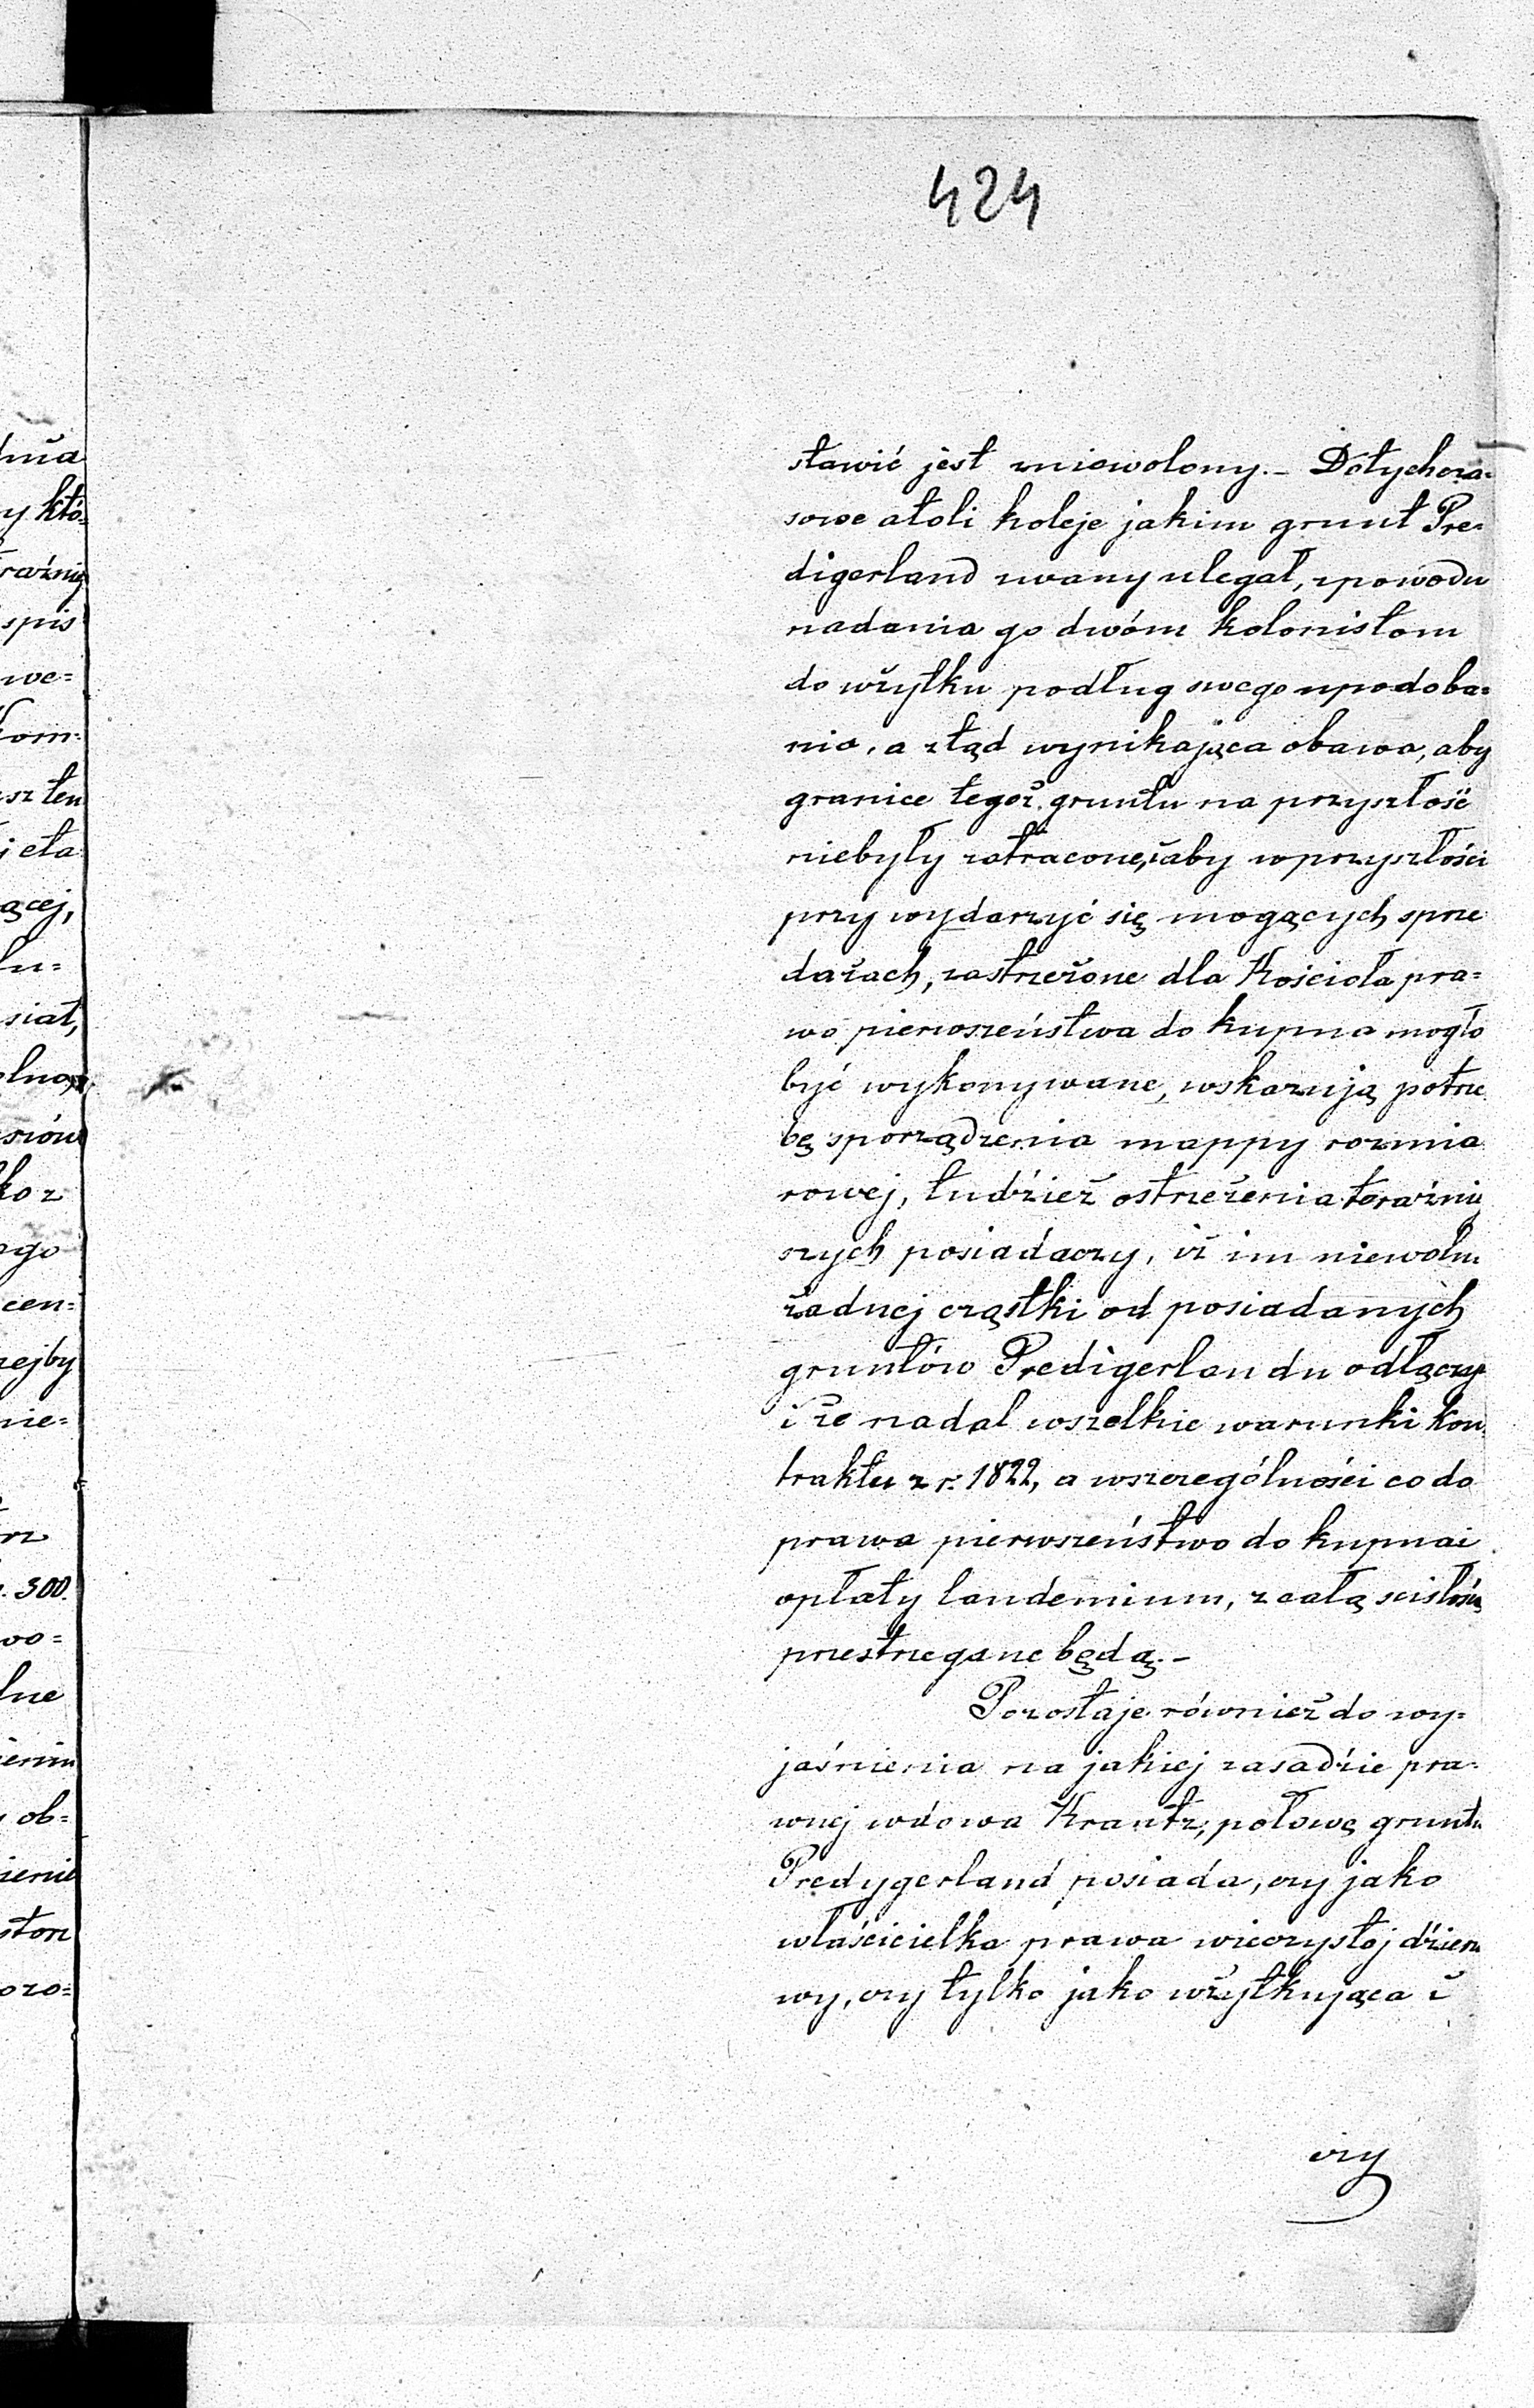 424
stawić jest zniewolony. – Dotychcza=
sowe atoli koleje jakim grunt Pre=
digerland zwany ulegał, z powodu
nadania go dwóm kolonistom
do użytku podług swego upodoba=
nia, a ztąd wynikająca obawa, aby
granice tegoż gruntu na przyszłość
niebyły zatracone, i aby w przyszłości
przy wydarzyć się mogących sprze
dażach, zastrzeżone dla Kościoła pra=
wo pierwszeństwa do kupna mogło
być wykonywane, wskazują potrze
bę sporządzenia mappy rozmia
rowej, tudzież ostrzeżenia teraźniej
szych posiadaczy, iż im niewolno
żadnej cząstki od posiadanych
gruntów Predigerlandu odłączyć
i że nadal wszelkie warunki kon
traktu z r. 1822, a w szczególności co do
prawa pierwszeństwa do kupna i
opłaty laudemium, z całą scisłością
przestrzegane będą. –
Pozostaje również do wy=
jaśnienia na jakiej zasadzie pra=
wnej wdowa Krantz, połowę gruntu
Predygerland posiada, czy jako
właścicielka prawa wieczystej dzierża
wy, czy tylko jako użytkująca i
czy
dnia
y któ=
raźniej
spis
we=
Kom=
sz ten
ącej,
lu=
siał,
ko z
cen=
zejby
nie=
300.
wo=
lne
ob=
ozo=